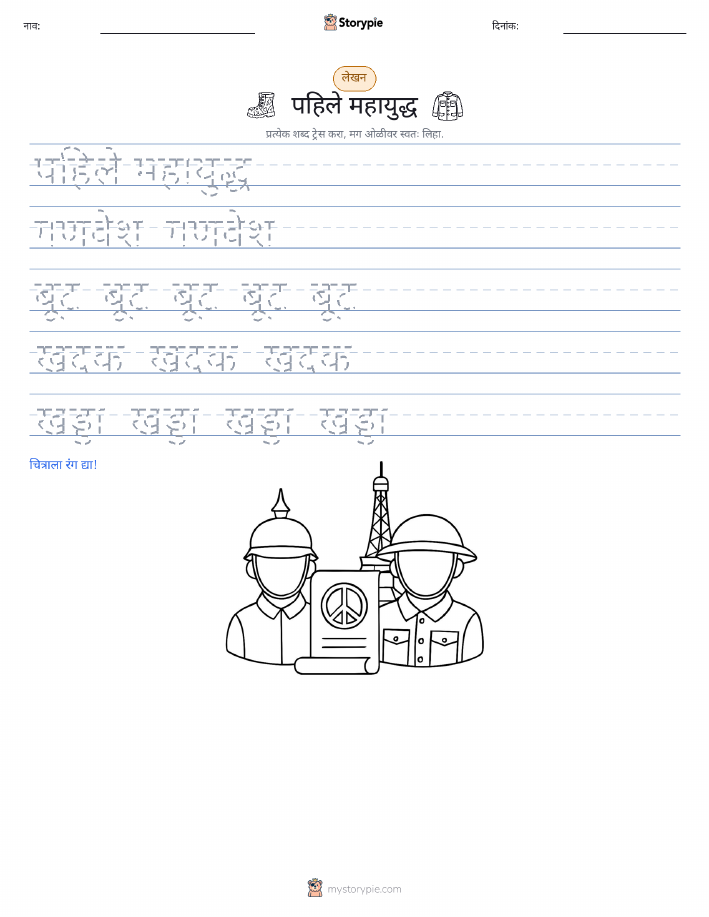 नाव:
Storypie
दिनांक:
लेखन
पहिले महायुद्ध
प्रत्येक शब्द ट्रेस करा, मग ओळीवर स्वतः लिहा.
पहिले महायुद्ध
गणवेश गणवेश
बूट बूट बूट बूट बूट
खंदक खंदक खंदक
खड्डा खड्डा खड्डा खड्डा
चित्राला रंग द्या!
mystorypie.com